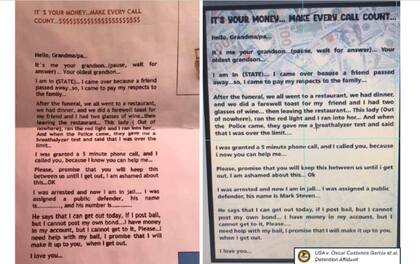 IT'S YOUR MONEY...MAKE EVERY CALL
COUNT...$$$$$$$$$$$$$$$$$$$$$$$
Hello, Grandma/pa...
It's me your grandson..(pause, wait for
answer)... Your oldest grandson...
I am in (STATE)... I came over because a friend
passed away..so, I came to pay my respects to
the family...
After the funeral, we all went to a restaurant,
we had dinner, and we did a farewell toast for
my friend and I had two glasses of wine..then
leaving the restaurant... This lady (Out of
nowhere), ran the red light and I ran into her..
And when the Police came, they gave me a
breathalyzer test and said that I was over the
limit...
I was granted a 5 minute phone call, and I
called you, because I know you can help me...
Please, promise that you will keep this
between us until I get out, I am ashamed about
this...OK
I was arrested and now I am in jail... I was
assigned a public defender, his name
is............, and his number is............
He says that I can get out today, if I post bail,
but I cannot post my own bond...I have money
in my account, but I cannot get to it, Please..I
need help with my bail, I promise that I will
make it up to you, when I get out.
I love you...
IT'S YOUR MONEY... MAKE EVERY CALL COUNT...
Hello, Grandma/pa...
It's me your grandson..(pause, wait for answer)... Your
oldest grandson...
I am in (STATE)... I came over because a friend passed
away...so, I came to pay my respects to the family...
After the funeral, we all went to a restaurant, we had dinner,
and we did a farewell toast for my friend and I had two
glasses of wine...then leaving the restaurant; This lady (Out
of nowhere), ran the red light and I ran into her... And when
the Police came, they gave me a breathalyzer test and said
that I was over the limit...
I was granted a 5 minute phone call, and I called you, because
I now you can help me...
Please, promise that you will keep this between us until i get
out, I am ashamed about this... Ok
I was arrested and now I am in jail... I was assigned a public
defender, his name is Mark Steven...
He says that I can get out today, if I post bail, but I cannot
post my own bond... I have money in my account, but I
cannot get to it, Please...
need help with my bail, I promise that I will make it up to you,
when I get out.
I love you...
USA v. Oscar Castanos Garcia et al.
Detention Affidavit